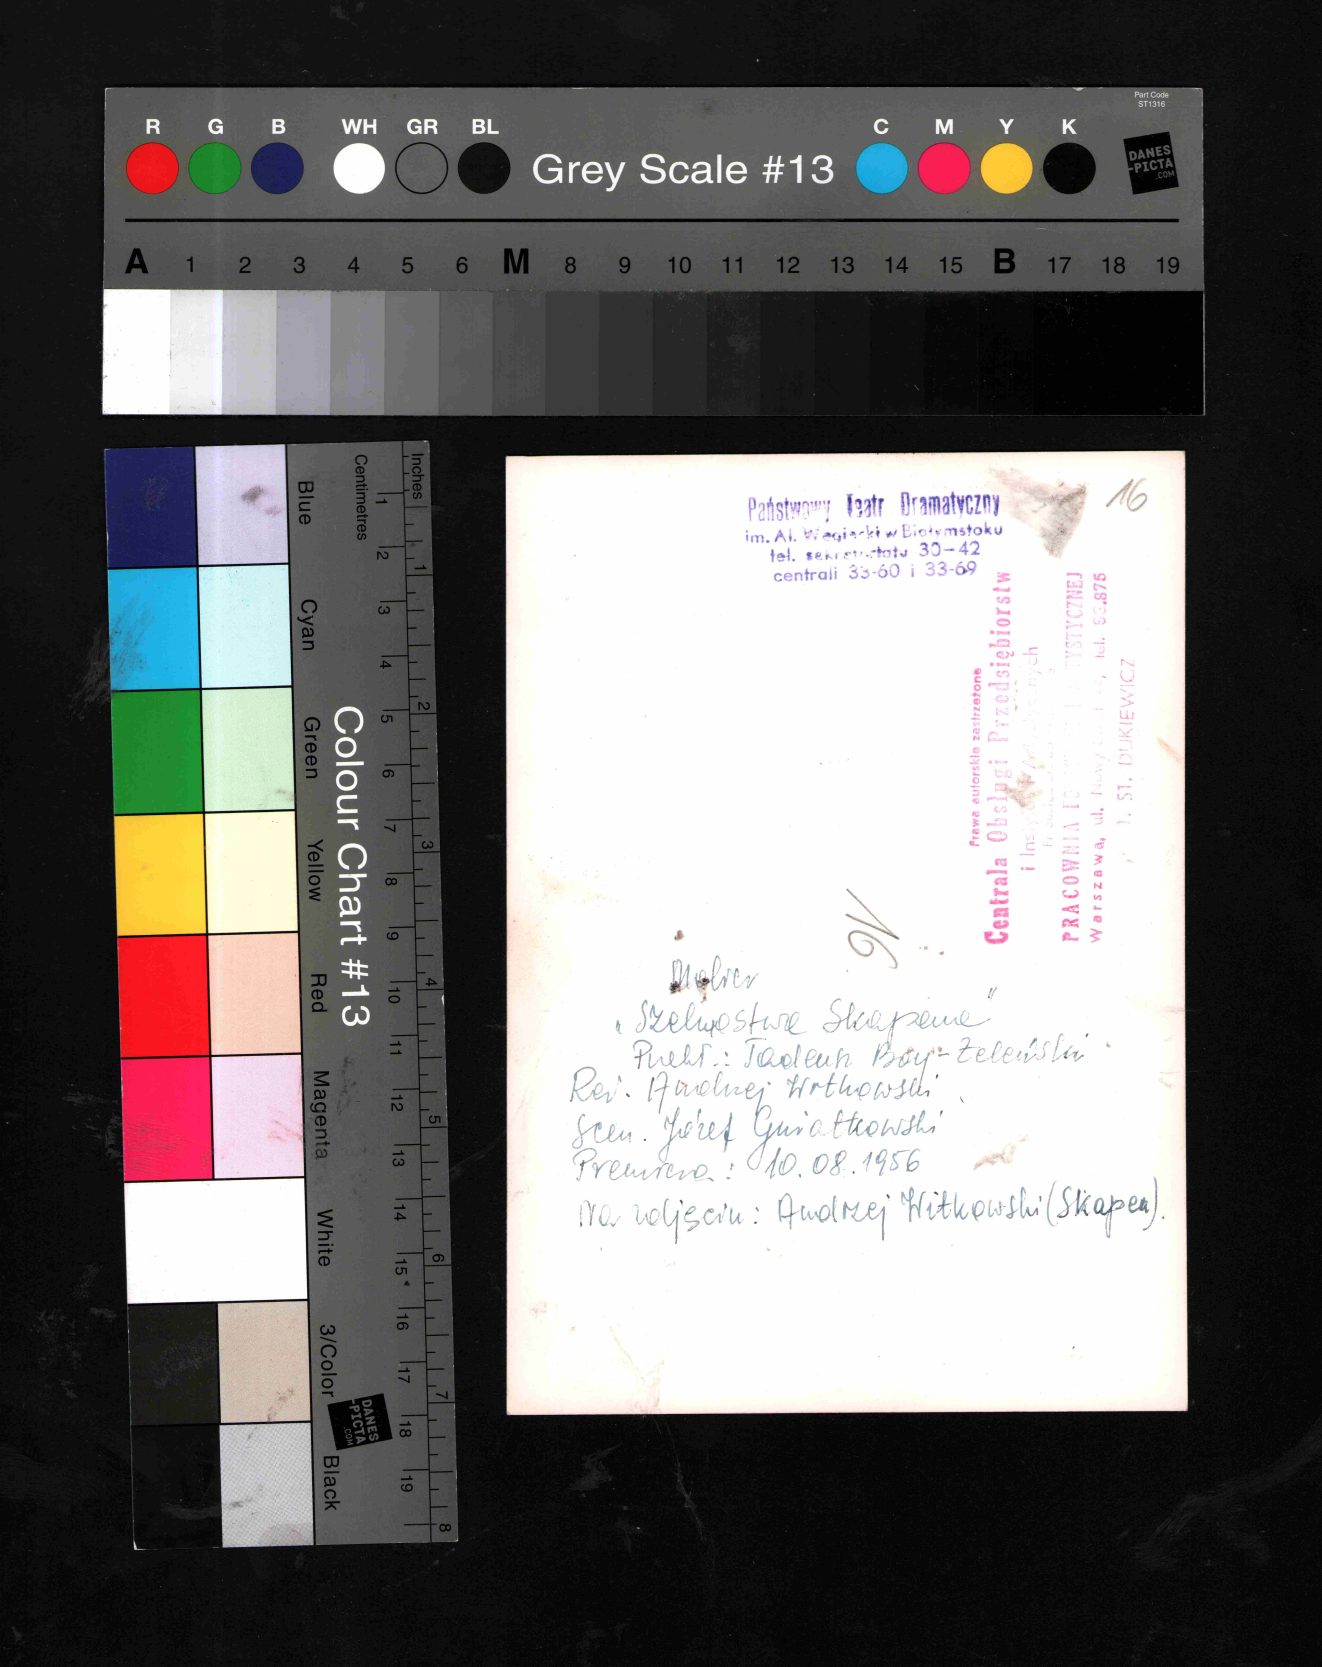 Part Code
ST1316
R G B WH GR BL Grey Scale #13 C M Y K
DANES
-PICTA
.COM
A 1 2 3 4 5 6 M 8 9 10 11 12 13 14 15 B 17 18 19
Colour Chart #13
Blue
Cyan
Green
Yellow
Red
Magenta
White
3/Color
Black
Centimetres
1 2 3 4 5 6 7 8 9 10 11 12 13 14 15 16 17 18 19
Inches
1 2 3 4 5 6 7 8
DANES
-PICTA
.COM
Państwowy Teatr Dramatyczny
im. Al. Węgierki w Białymstoku
tel. sekretariatu 30-42
centrali 33-60 i 33-69
16
Prawa autorskie zastrzeżone
Centrala Obsługi Przedsiębiorstw
i Artystycznych
PRACOWNIA
Warszawa, ul. Nowy tel.
ST. DUKIEWICZ
16
Molier
„Szelmostwa Skapena"
Przekł.: Tadeusz Boy-Żeleński
Reż. Andrzej Witkowski
Scen. Józef Gniatkowski
Premiera: 10.08.1956
Na zdjęciu: Andrzej Witkowski (Skapen).